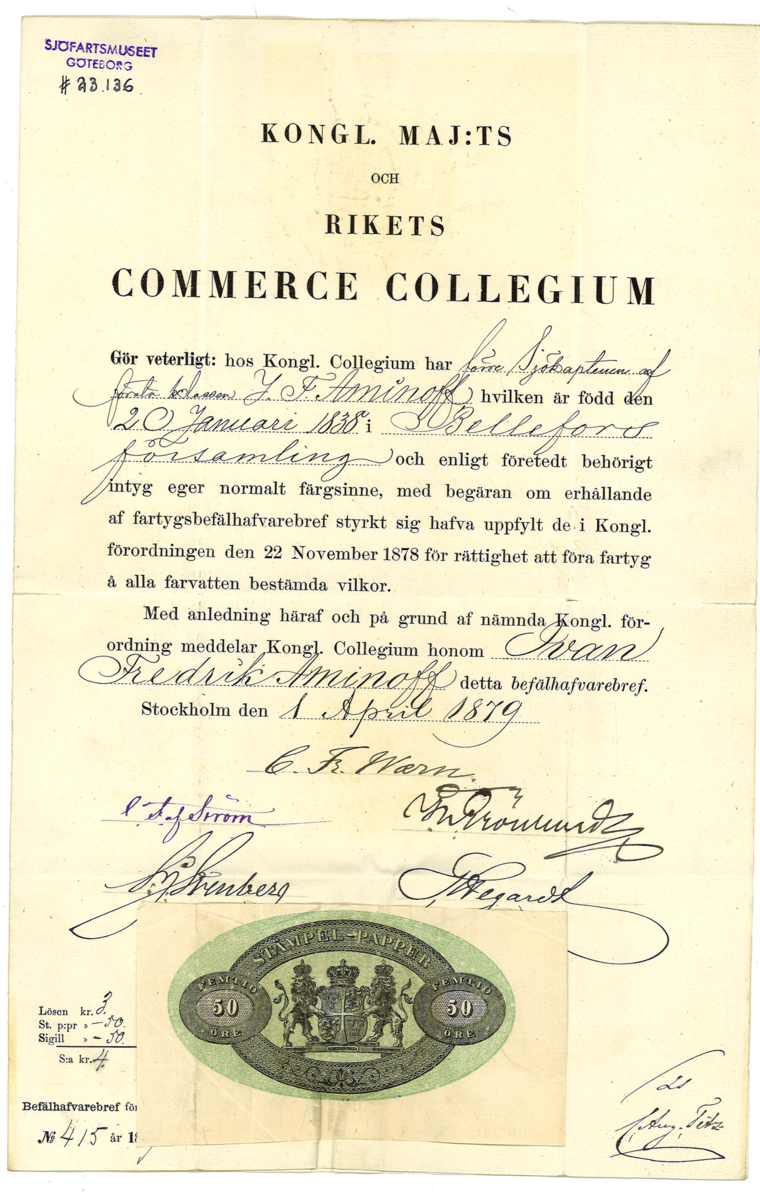 SJÖFARTSMUSEET
GÖTEBORG
# 23.136
KONGL. MAJ:TS
OCH
RIKETS
COMMERCE COLLEGIUM
Gör veterligt: hos Kongl. Collegium har förre Sjökaptenen af
första klassen J. F. Aminoff hvilken är född den
20 Januari 1838 i Bellefors
församling och enligt företedt behörigt
intyg eger normalt färgsinne, med begäran om erhållande
af fartygsbefälhafvarebref styrkt sig hafva uppfylt de i Kongl.
förordningen den 22 November 1878 för rättighet att föra fartyg
å alla farvatten bestämda vilkor.
Med anledning häraf och på grund af nämnda Kongl. för-
ordning meddelar Kongl. Collegium honom Ivan
Fredrik Aminoff detta befälhafvarebref.
Stockholm den 1 April 1879
C. Fr. Wærn.
af Ström
STÄMPEL-PAPPER
FEMTIO 50 ÖRE
FEMTIO 50 ÖRE
Lösen kr. 3.
St. p:pr » – 50.
Sigill » – 50.
S:a kr. 4
Befälhafvarebref för
№ 415 år 18
Aug. Titz